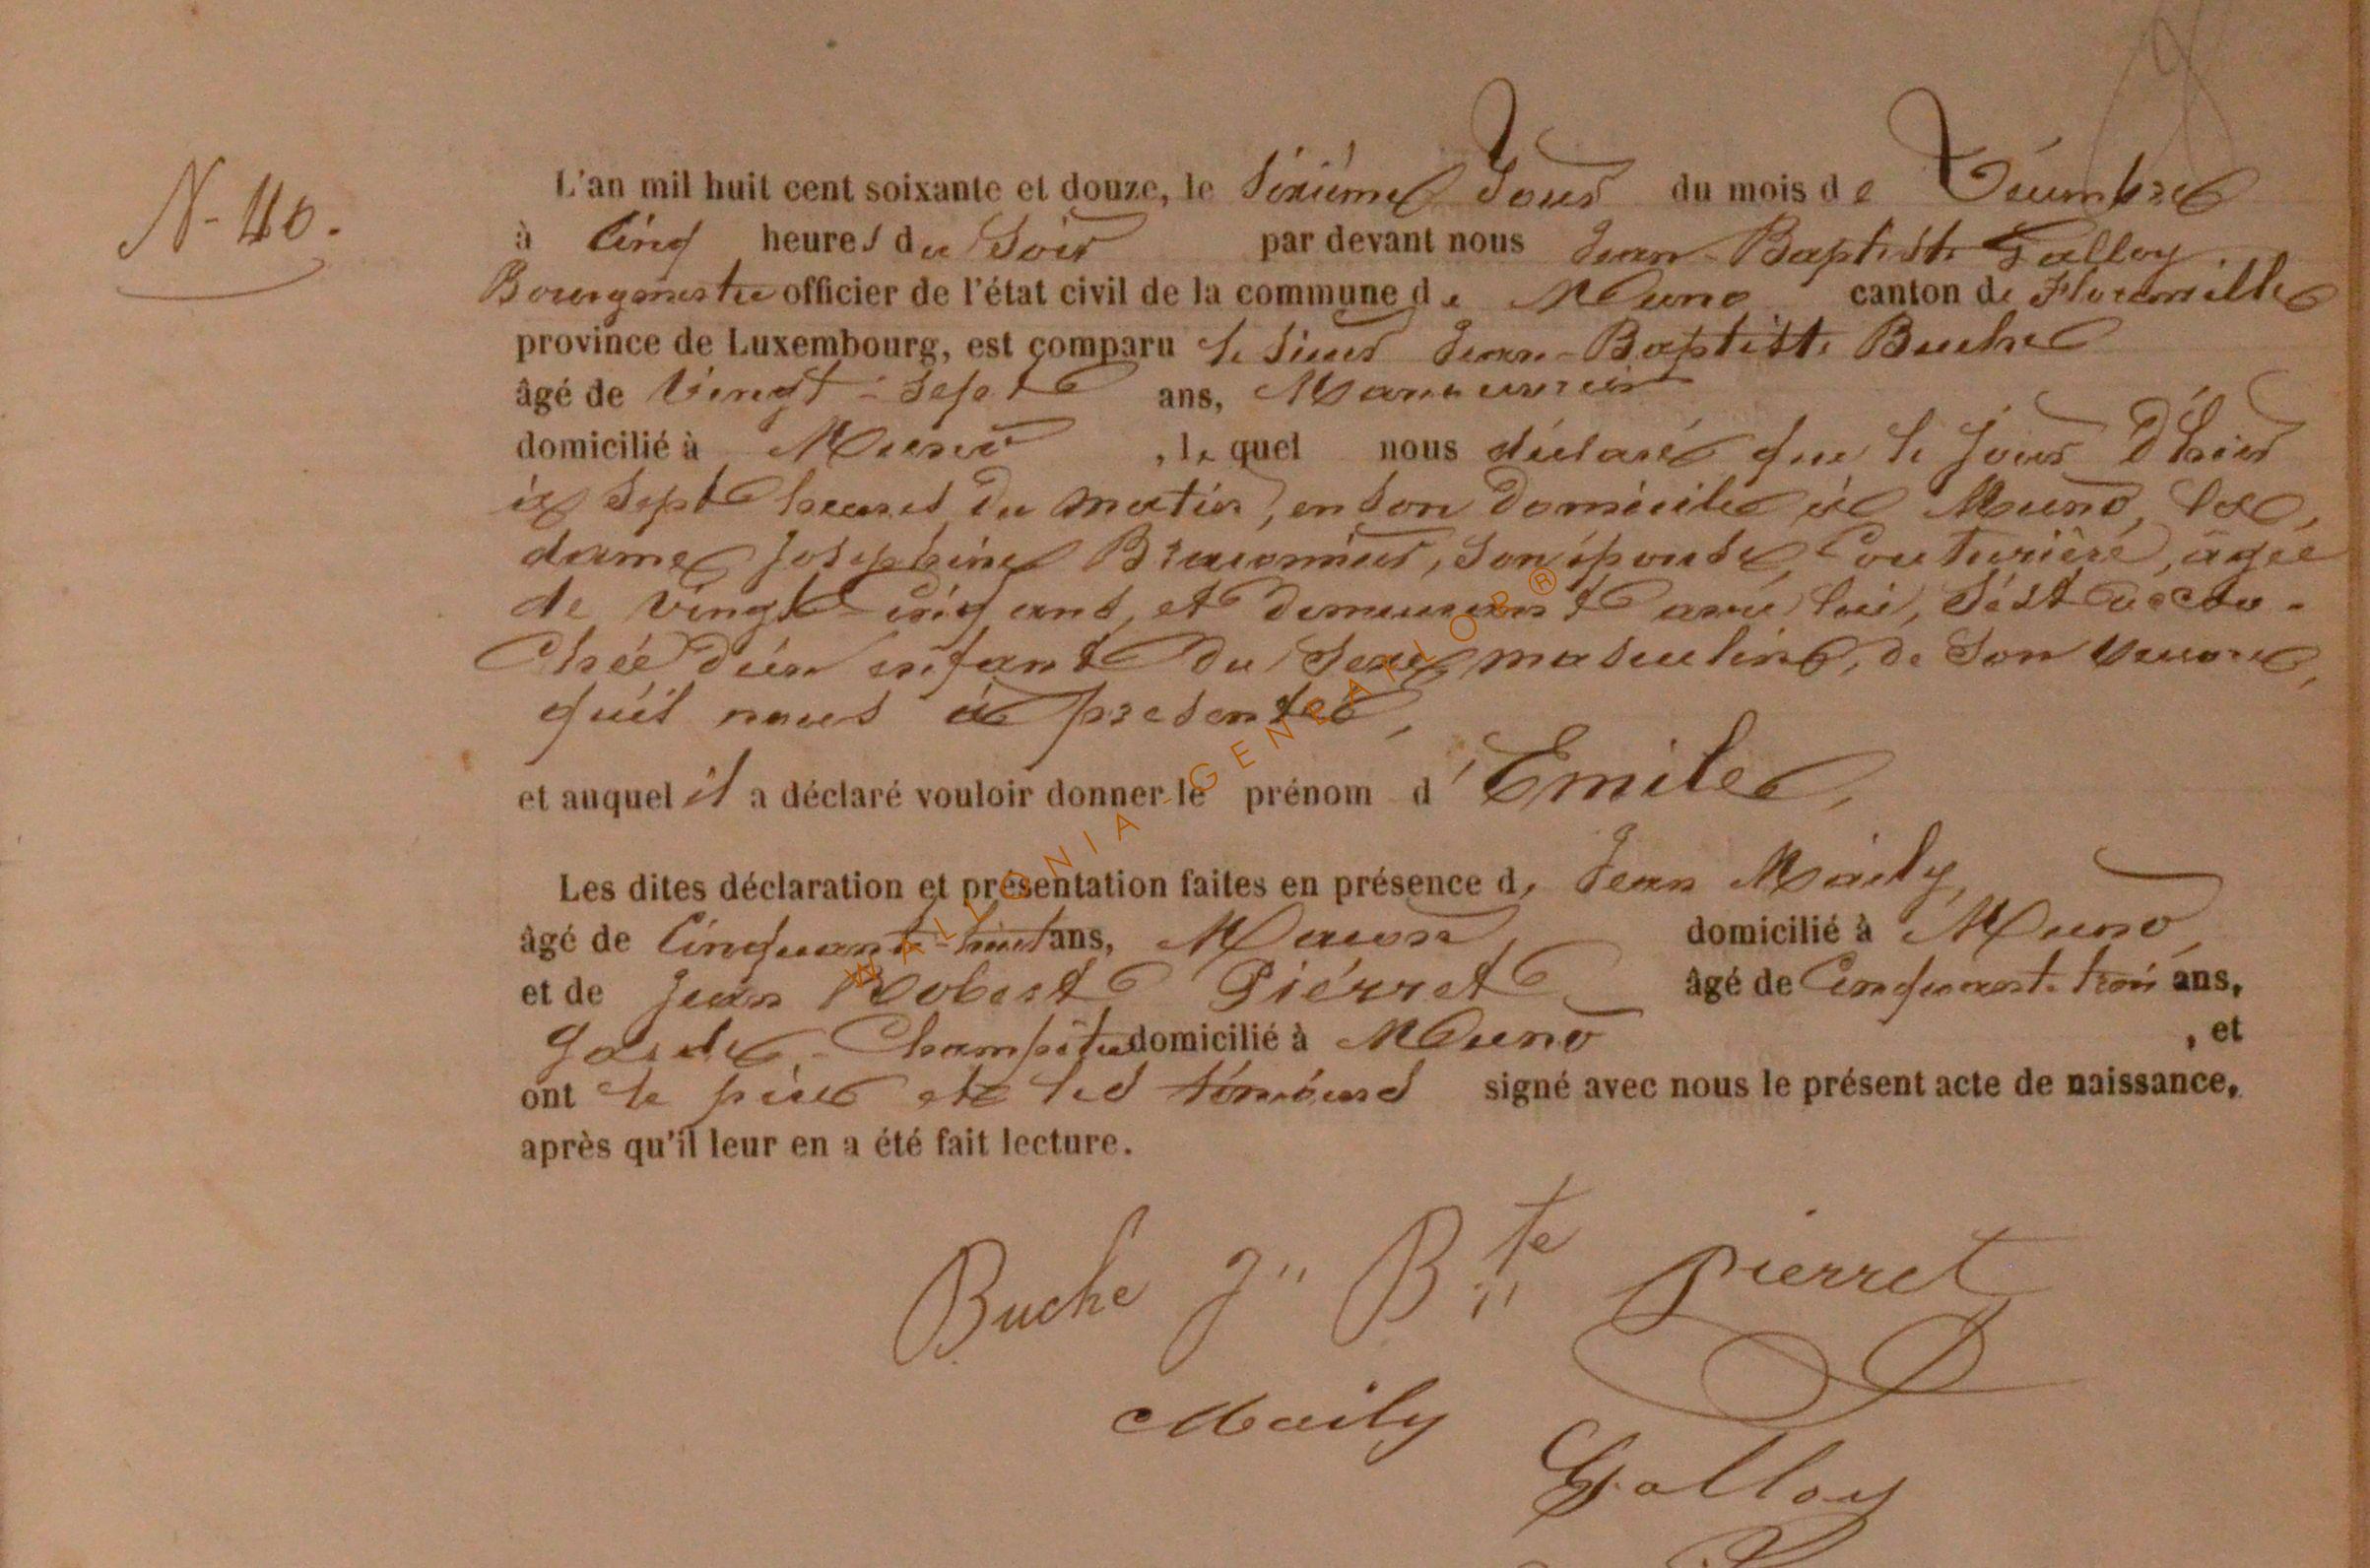 N- 40.
L'an mil huit cent soixante et douze, le sixième jour du mois de Décembre
à Cinq heures du Soir par devant nous Jean-Baptiste Galloy
Bourgmestre officier de l'état civil de la commune de Muno canton de Florenville
province de Luxembourg, est comparu le Sieur Jean-Baptiste Buche
âgé de Vingt-Sept ans, Manouvrier
domicilié à Muno, lequel nous déclaré que le jour D'hier
à Sept heures Du matin, en Son Domicile à Muno, la
dame Joséphine Braconnier, Son épouse, Couturière, âgée
de Vingt-cinq ans, et Demeurant avec lui, S'est accou-
chée d'un enfant Du Sexe masculin, de Son œuvre,
qu'il nous à présenté,
et auquel il a déclaré vouloir donner le prénom d'Emile,
Les dites déclaration et présentation faites en présence de Jean Maily,
âgé de Cinquante-huit ans, Maçon, domicilié à Muno,
et de Jean Robert Piérret âgé de Cinquante-trois ans,
Garde-Champêtre domicilié à Muno, et
ont le père et les témoins signé avec nous le présent acte de naissance,
après qu'il leur en a été fait lecture.
Buche J" Bte Pierret
Maily
Galloy
WALLONIA - GENEALOR ®